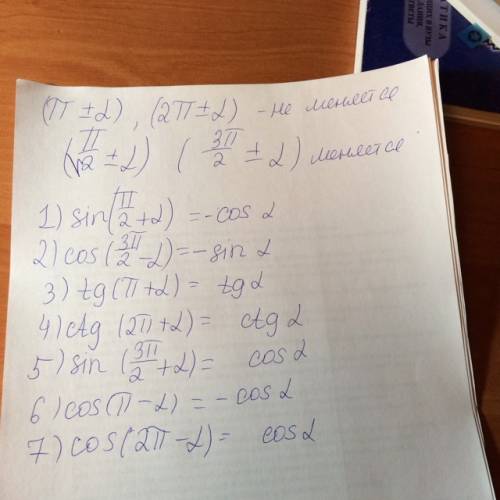 ТИКА
(π ± α), (2π ± α) - не меняется
(π/2 ± α) (3π/2 ± α) меняется
1) sin(π/2 + α) = -cos α
2) cos(3π/2 - α) = - sin α
3) tg(π + α) = tg α
4) ctg (2π + α) = ctg α
5) sin (3π/2 + α) = cos α
6) cos(π - α) = - cos α
7) cos(2π - α) = cos α